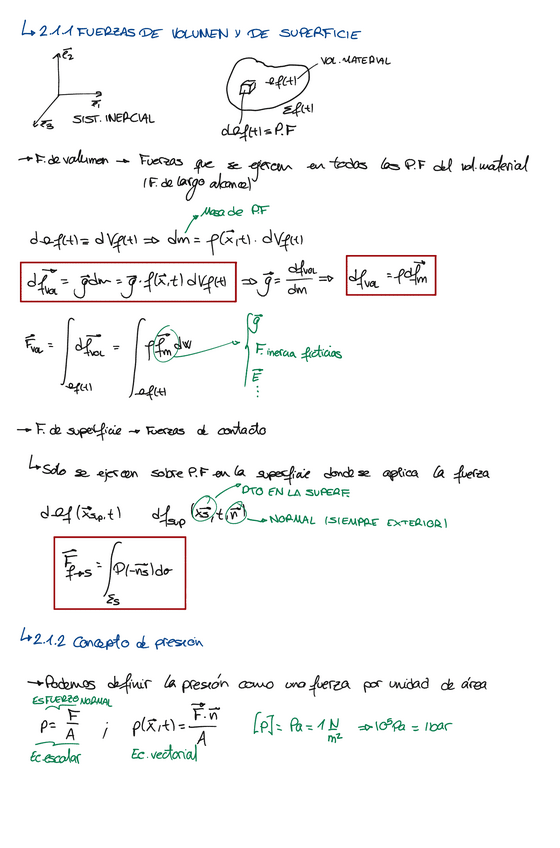 ↳ 2.1.1 FUERZAS DE VOLUMEN Y DE SUPERFICIE
VOL. MATERIAL
SIST. INERCIAL
→ F. de volumen → Fuerzas que se ejercen en todas las P.F del vol. material
(F. de largo alcance)
Masa de P.F
⇒ dm = ρ(x⃗,t) · dVf(t)
df⃗vol = g⃗dm = g⃗ · ρ(x⃗,t) dVf(t) ⇒ g⃗ = dfvol/dm ⇒ dfvol = ρdf⃗m
F⃗vol = ∫ df⃗vol = ∫ ρf⃗m dv
g⃗
F. inercia ficticias
E⃗
⋮
→ F. de superficie → Fuerzas de contacto
↳ Solo se ejercen sobre P.F en la superficie donde se aplica la fuerza
PTO EN LA SUPERF.
df⃗sup (x⃗s, t, n⃗) → NORMAL (SIEMPRE EXTERIOR)
F⃗f→s = ∫Σs P(-n⃗s) dσ
↳ 2.1.2 Concepto de presión
→ Podemos definir la presión como una fuerza por unidad de área
ESFUERZO NORMAL
P = F/A ; p(x⃗,t) = F⃗·n⃗/A [P] = Pa = 1 N/m² ⇒ 10⁵Pa = 1bar
Ec. escalar Ec. vectorial